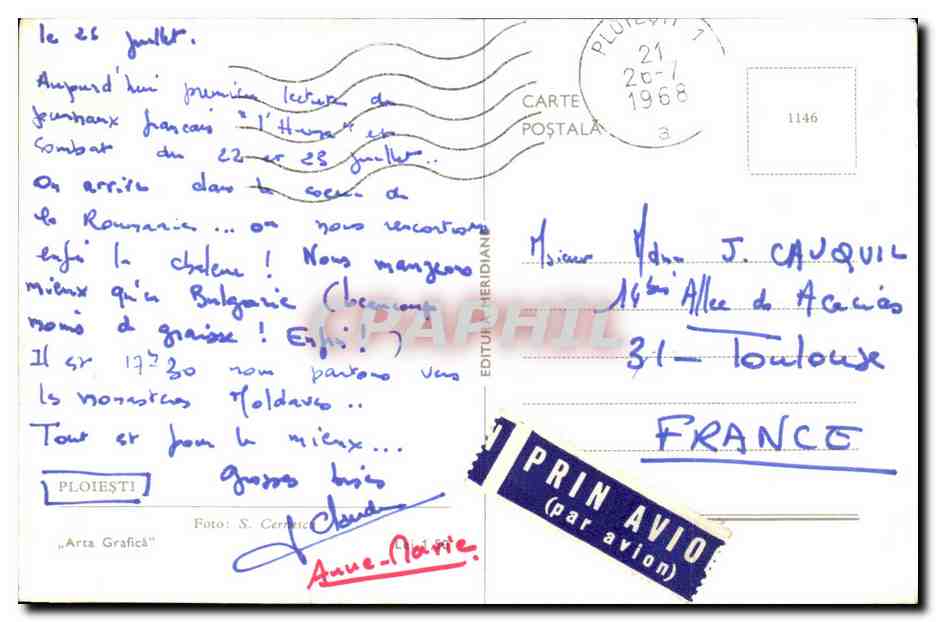 le 26 juillet.
Aujourd'hui première lecture de
journaux français "l'Huma" et
Combat du 22 et 23 juillet..
On arrive dans le coeur de
la Roumanie... on nous rencontrons
enfin la chaleur ! Nous mangeons
mieux qu'en Bulgarie (beaucoup
moins de graisse ! Enfin !)
Il est 17h30 nous partons vers
les monastères Moldaves..
Tout est pour le mieux...
Grosses bises
J Claude
Anne-Marie.
PLOIEȘTI
Foto: S. Cer
„Arta Grafică"
Lei 1,50
EDITURA MERIDIANE
CARTE
POȘTALĂ
PLOIEȘTI 1
21
26-7
1968
1146
Monsieur Mdme J. CAUQUIL
14 bis Allee des Acacias
31 - Toulouse
FRANCE
PRIN AVIO
(par avion)
CPAPHIL